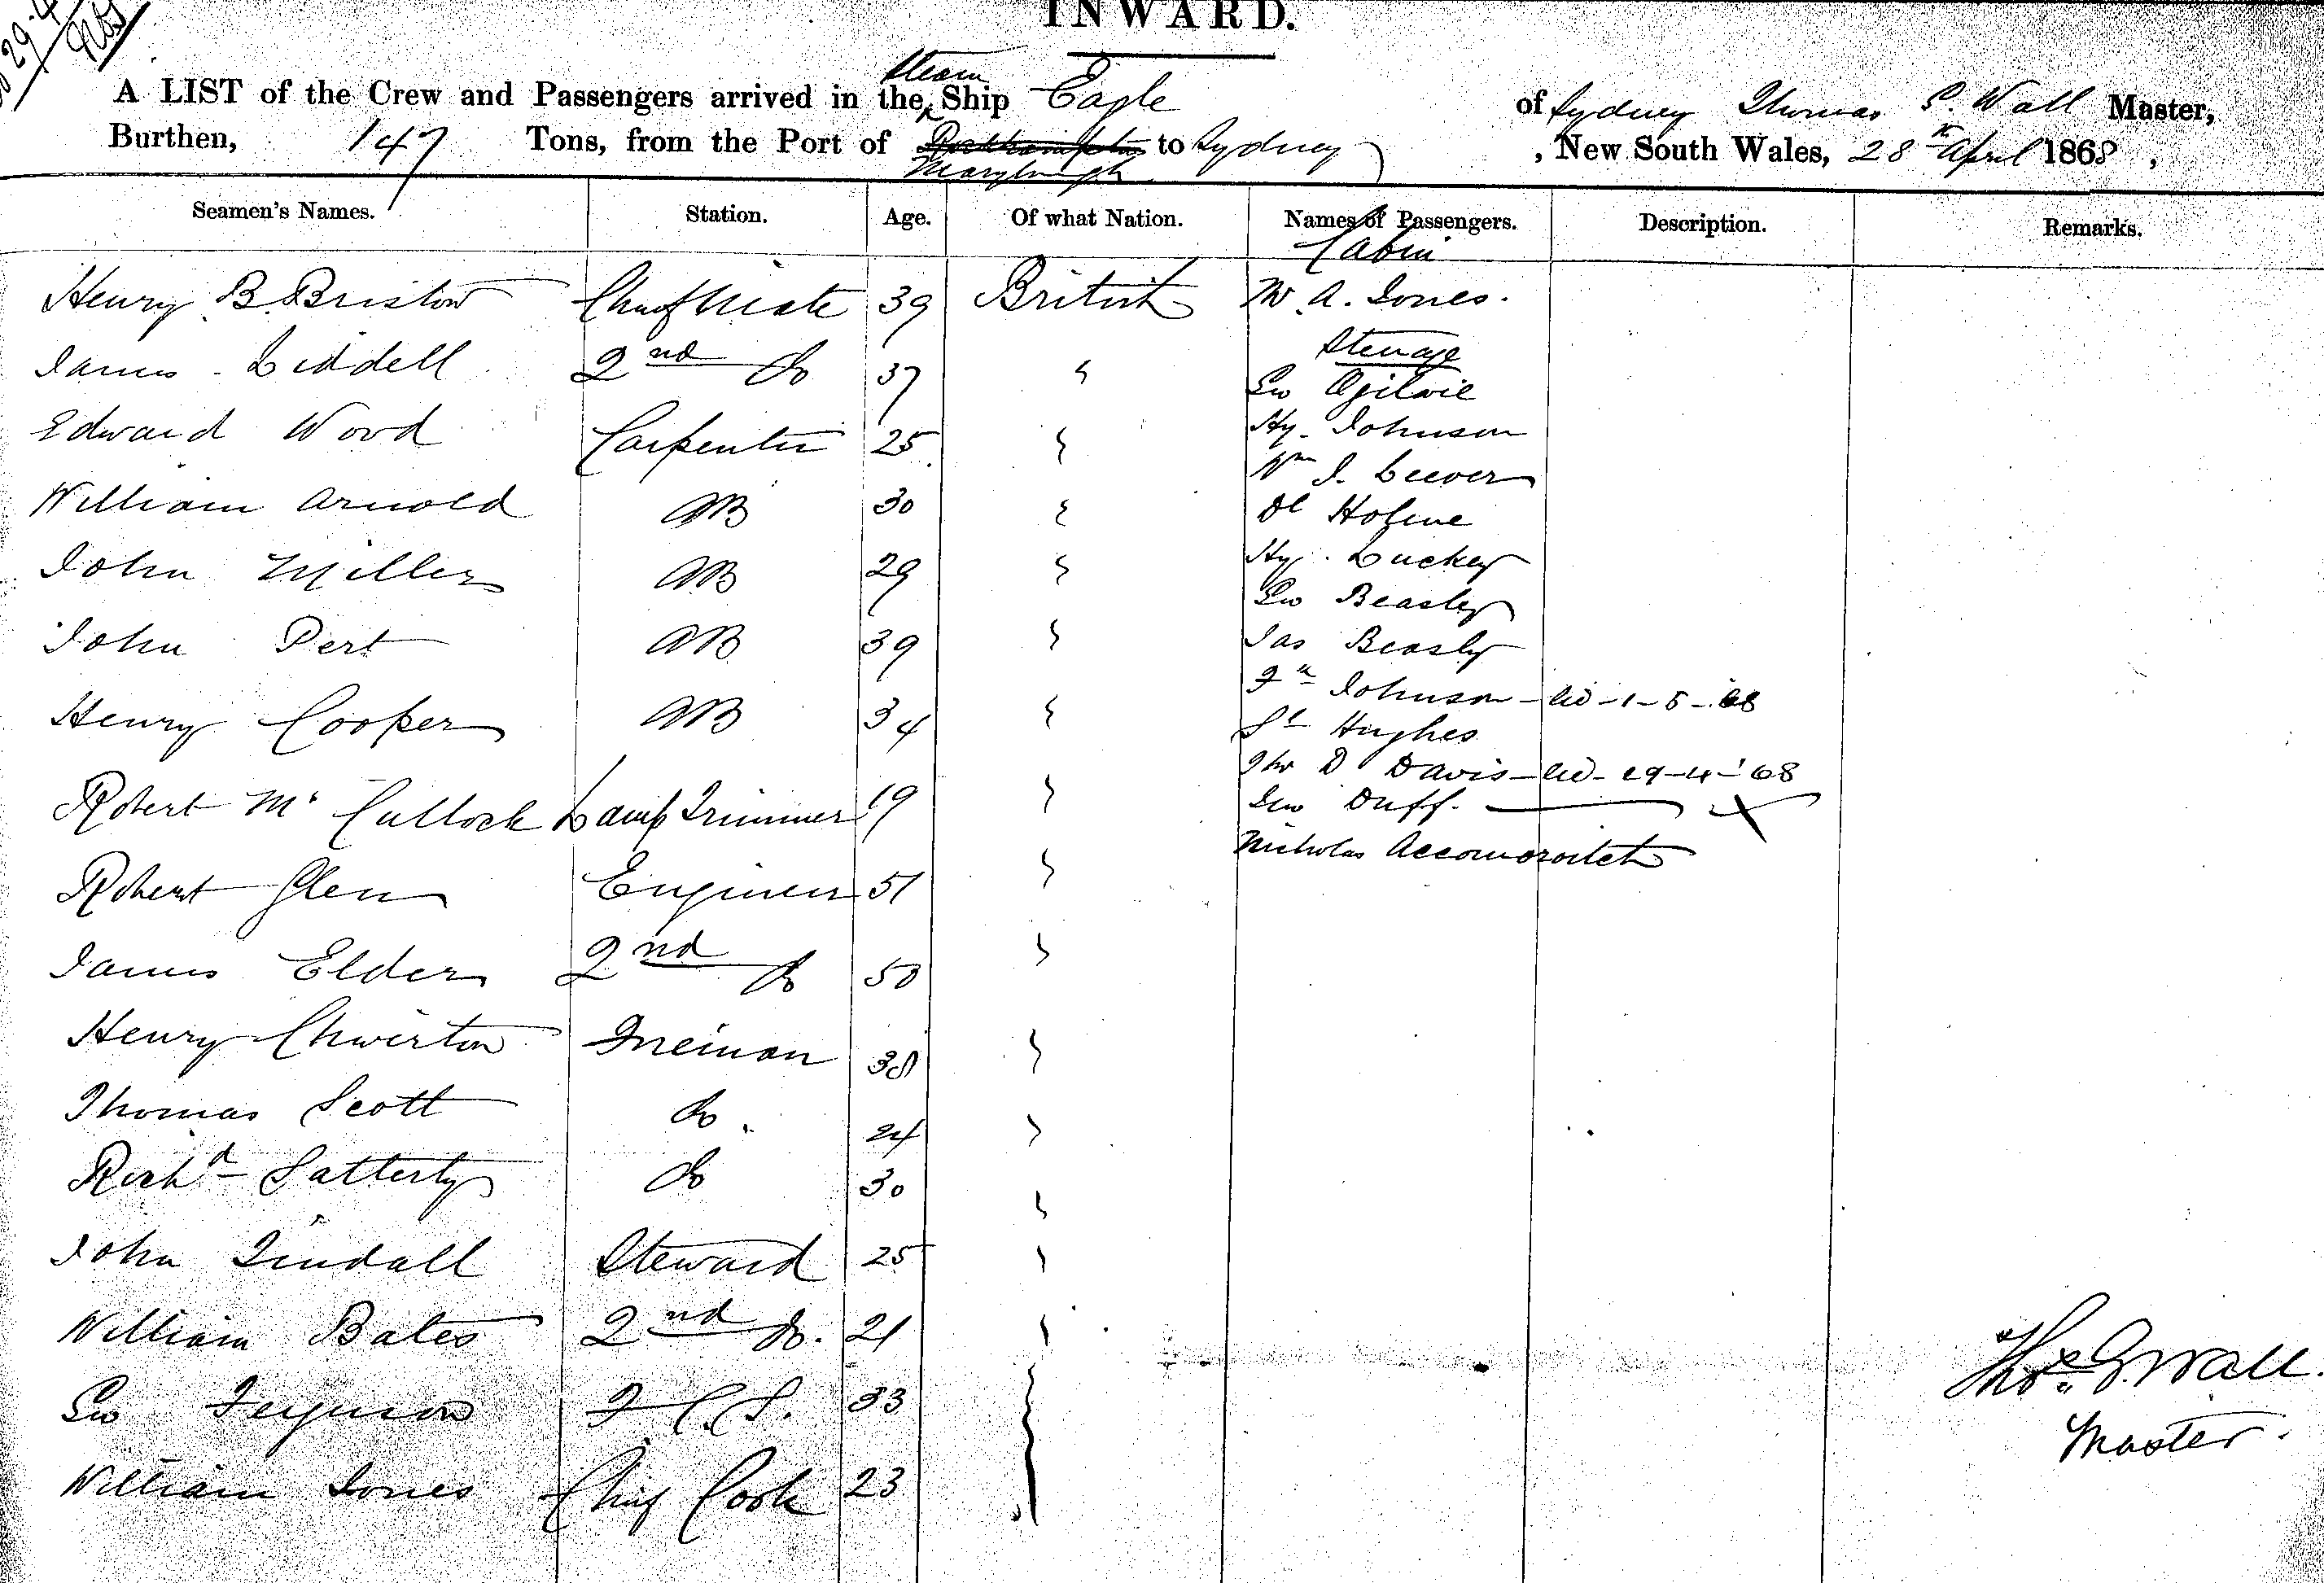 29-4
INWARD.
A LIST of the Crew and Passengers arrived in the Steam Ship Eagle of Sydney Thomas S. Wall Master,
Burthen, 147 Tons, from the Port of Rockhampton Maryburgh to Sydney, New South Wales, 28th April 1868,
Seamen's Names. Station. Age. Of what Nation. Names of Passengers. Description. Remarks.
Cabin
Henry B. Bristow Chief Mate 39 British W. A. Jones.
Steerage
James Liddell 2nd Do 37 " Geo Ogilvie
Hy. Johnson
Edward Wood Carpenter 25 "
Wm J. Leever
William Arnold AB 30 " Dl Holme
Hy. Luckey
John Miller AB 29 "
Geo Beasley
John Pert AB 39 " Jas Beasly
Johnson - 1-5-68
Henry Cooper AB 34 " Hughes
Tho D Davis - 29-4-'68
Robert Mc Cullock Lamp Trimmer 19 " Duff. X
Nicholas
Robert Glen Engineer 51 "
James Elder 2nd Do 50 "
Henry Chwerton Fireman 38 "
Thomas Scott Do. 24 "
Richd Satterly Do 30 "
John Tindall Steward 25 "
William Bates 2nd Do. 21 "
Geo Ferguson F C S. 33 "
William Jones Chief Cook 23 "
Thos. S. Wall.
Master.